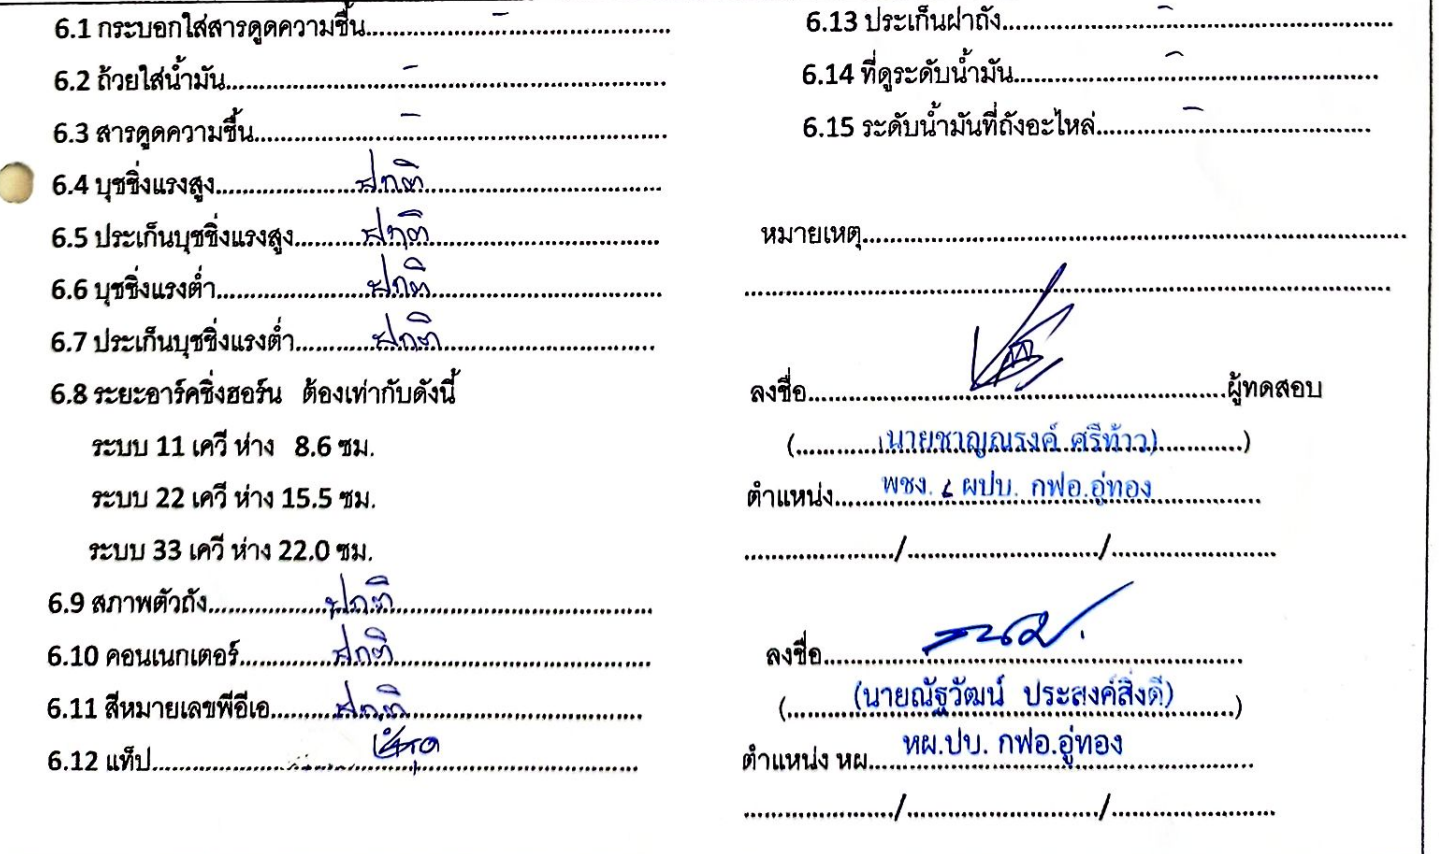 6.1 กระบอกใส่สารดูดความชื้น.....-.....
6.2 ถ้วยใส่น้ำมัน.....-.....
6.3 สารดูดความชื้น.....-.....
6.4 บุชชิ่งแรงสูง.....ปกติ.....
6.5 ประเก็นบุชชิ่งแรงสูง.....ปกติ.....
6.6 บุชชิ่งแรงต่ำ.....ปกติ.....
6.7 ประเก็นบุชชิ่งแรงต่ำ.....ปกติ.....
6.8 ระยะอาร์คชิ่งฮอร์น ต้องเท่ากับดังนี้
ระบบ 11 เควี ห่าง 8.6 ซม.
ระบบ 22 เควี ห่าง 15.5 ซม.
ระบบ 33 เควี ห่าง 22.0 ซม.
6.9 สภาพตัวถัง.....ปกติ.....
6.10 คอนเนกเตอร์.....ปกติ.....
6.11 สีหมายเลขพีอีเอ.....ปกติ.....
6.12 แท็ป.....
6.13 ประเก็นฝาถัง.....-.....
6.14 ที่ดูระดับน้ำมัน.....-.....
6.15 ระดับน้ำมันที่ถังอะไหล่.....-.....
หมายเหตุ.....
ลงชื่อ.....ผู้ทดสอบ
(.....(นายชาญณรงค์ ศรีท้าว).....)
ตำแหน่ง.....พชง. ๕ ผปบ. กฟอ.อู่ทอง.....
...../...../.....
ลงชื่อ.....
(.....(นายณัฐวัฒน์ ประสงค์สิ่งดี).....)
ตำแหน่ง หผ.....หผ.ปบ. กฟอ.อู่ทอง.....
...../...../.....